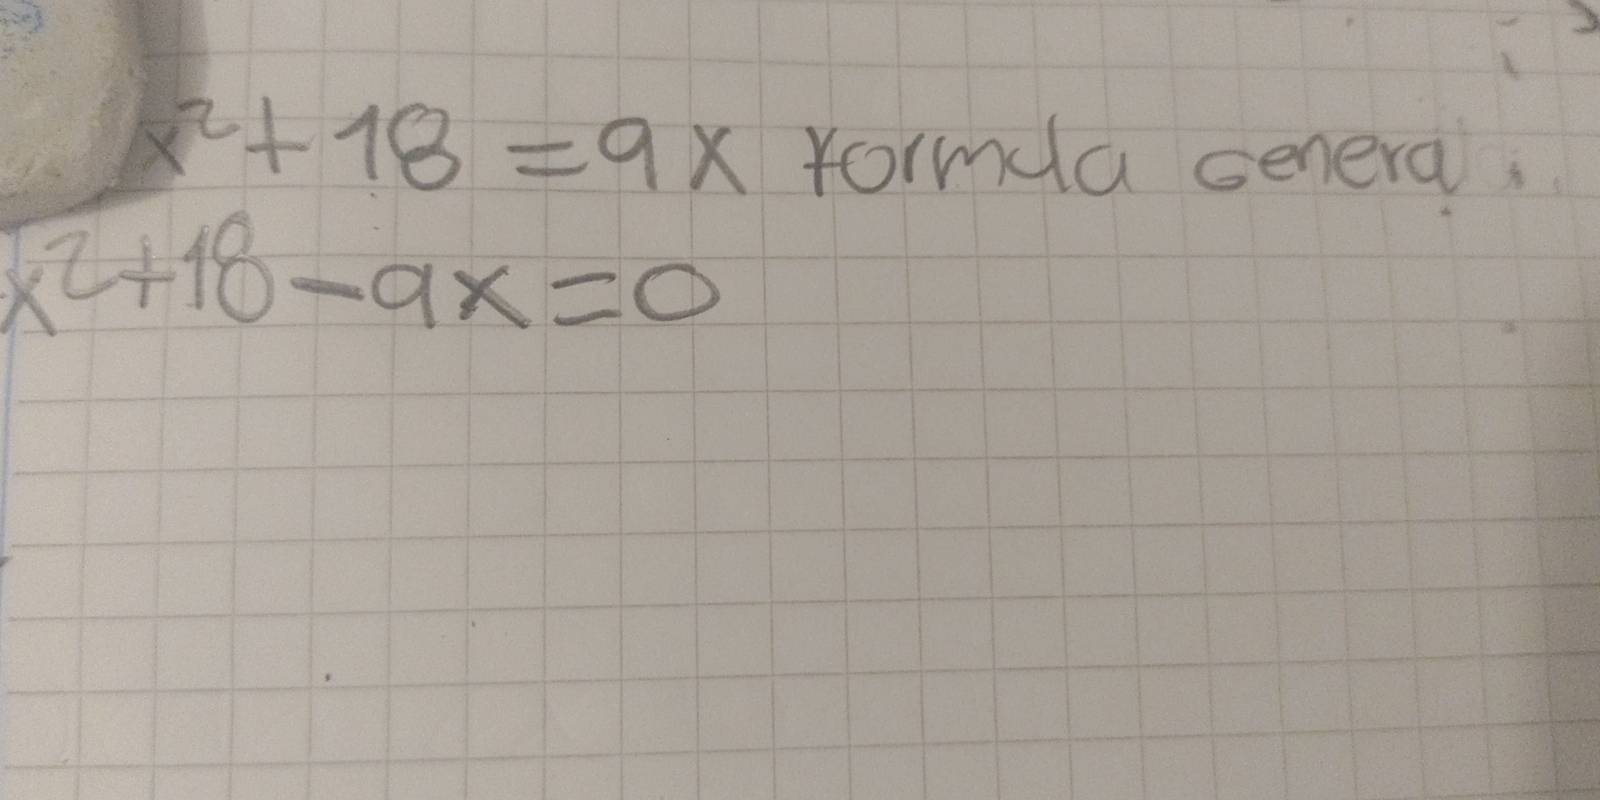 x²+18=9x formula genera
x²+18-9x=0